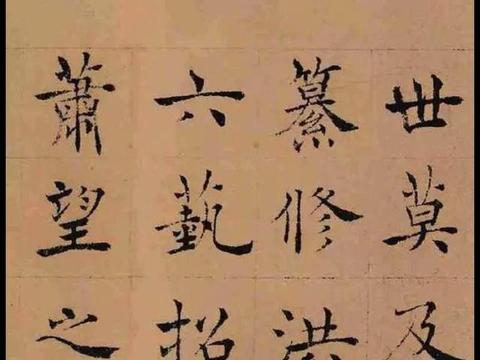 世莫及
纂修洪
六蓺招
蕭望之